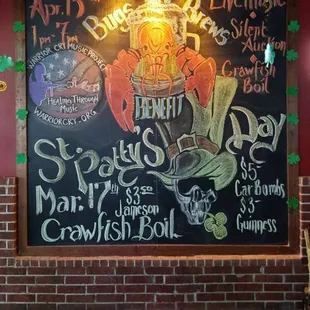 Live Music
Apr. 13th
1pm - 7pm
Bugs
Brews
Silent
Auction
Crawfish
Boil
Warrior Cry Music Project
Healing Through
Music
WarriorCry.org
Benefit
St. Patty's Day
Mar. 17th
$3.50
Jameson
Crawfish Boil
$5
Car Bombs
$3
Guinness